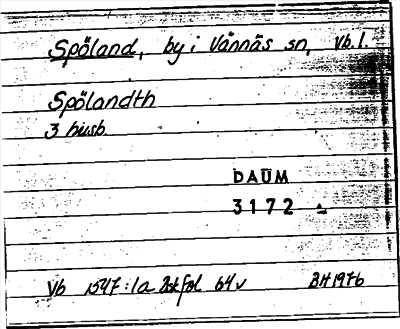 Spöland, by i Vännäs sn, Vb. l.
Spölandth
3 husb
DAUM
3172
Vb 1547:1a 2skfol 64v BH 1976